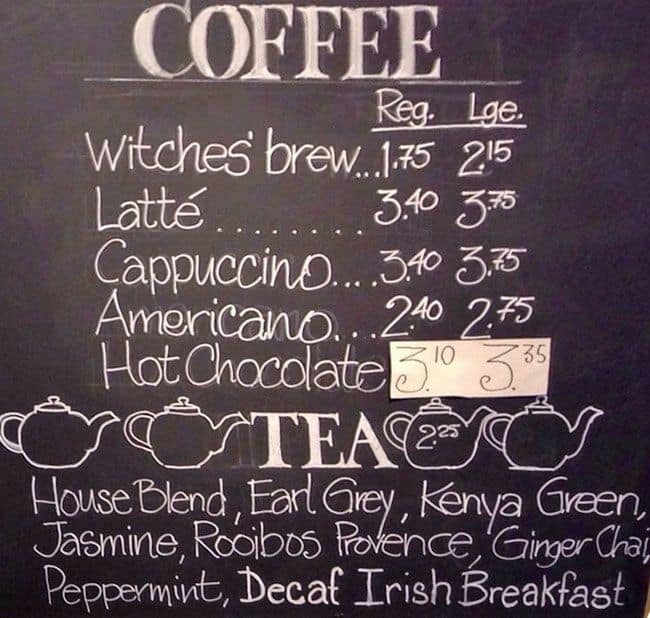 COFFEE
Reg. Lge.
Witches' brew...1.75 2.15
Latté ........ 3.40 3.75
Cappuccino....3.40 3.75
Americano...2.40 2.75
Hot Chocolate 3.10 3.35
TEA 2.25
House Blend, Earl Grey, Kenya Green,
Jasmine, Rooibos Provence, Ginger Chai,
Peppermint, Decaf Irish Breakfast